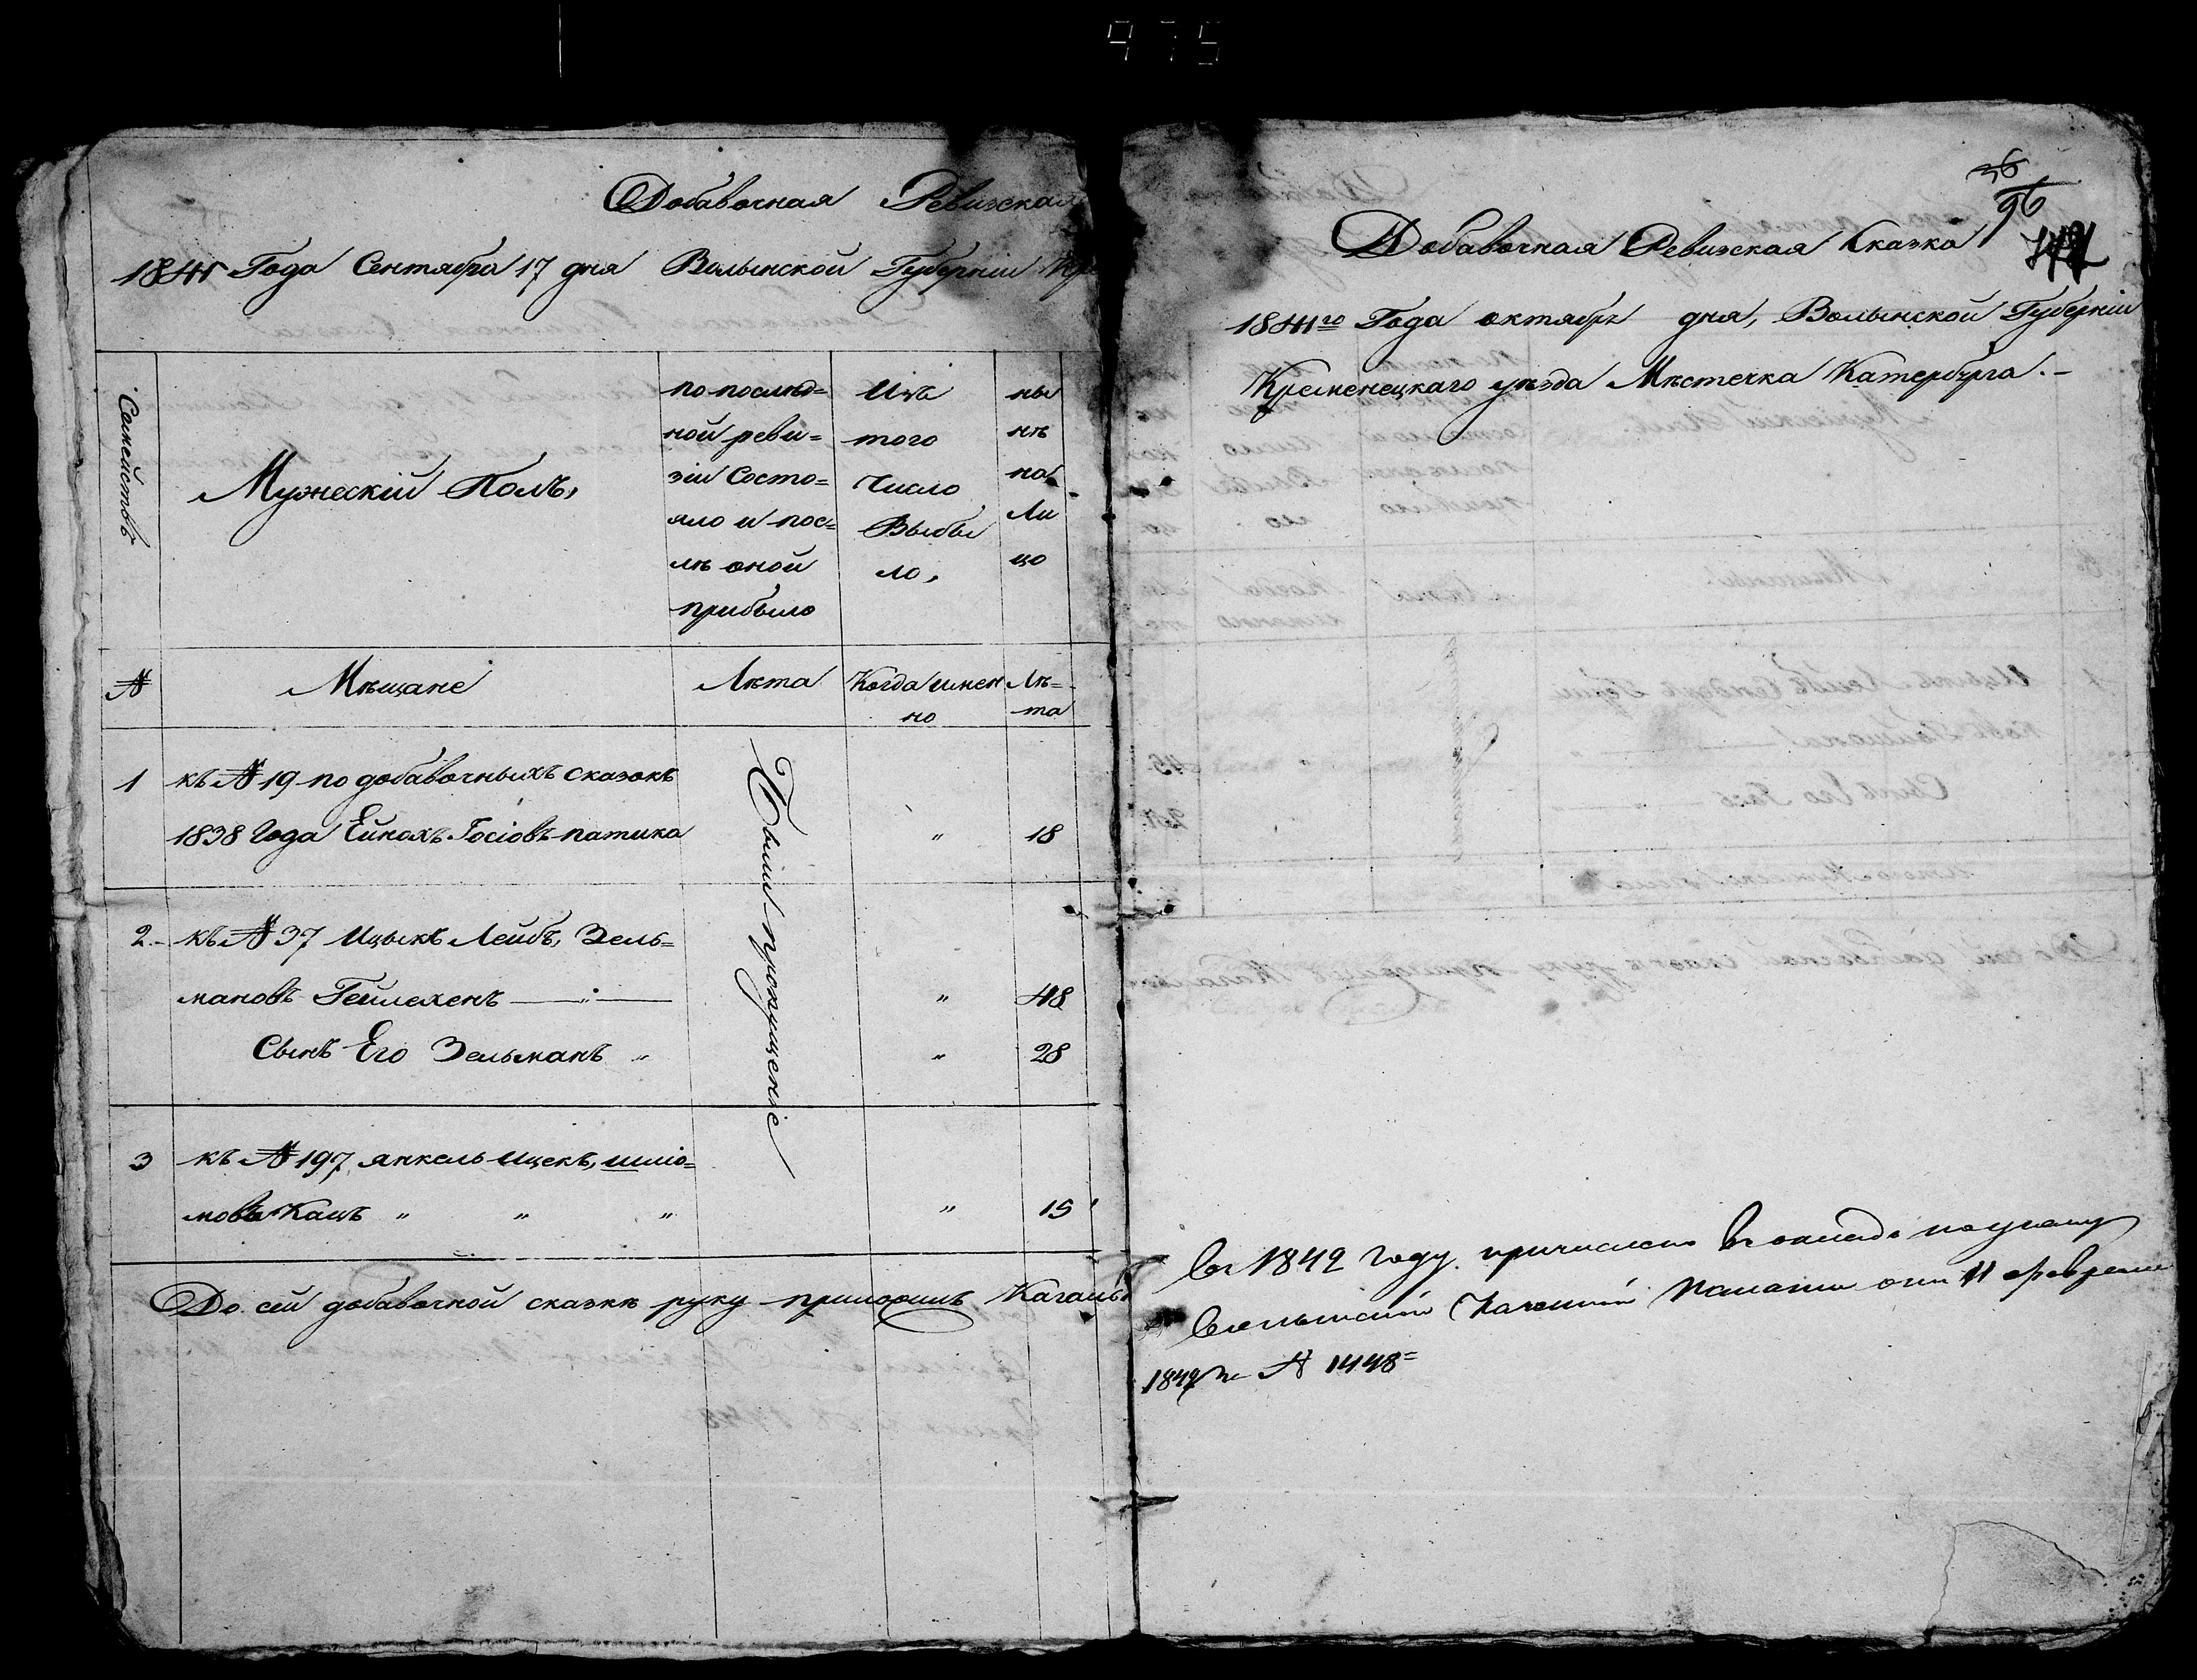 975
Добавочная Ревизская
1841 Года Сентября 17 дня Волынской Губерніи Кре
Семействъ
Мужескій Полъ,
по послѣд=
ной реви=
зіи Состо=
яло и пос=
лѣ оной
прибыло
Изъ
того
Число
Выбы
ло,
ны
нѣ
на
Ли
цо
№
Мѣщане
Лѣта
Когда имен
но
Лѣ=
та
1 къ № 19 по добавочныхъ сказокъ
1838 Года Ейнохъ Іосіовъ патика " 18
2. къ № 37 Ицыкъ Лейбъ, Зель=
мановъ Гейлехенъ " " 48
Сынъ Его Зельманъ " " 28
3 къ № 197 янкель Ицекъ, шліо=
мовъ Кацъ " " " " 15
Были пропущеніе
До сей добавочной сказкѣ руку приложилъ Кагаль
36
96
Добавочная Ревизская Сказка
1841го Года октября дня, Волынской Губерніи
Кременецкаго уѣзда Мѣстечка Катербурга.
Въ 1842 году причислено въ окладъ по указу
Волынской Казенной Палаты отъ 11 февраля
1842 за № 1448